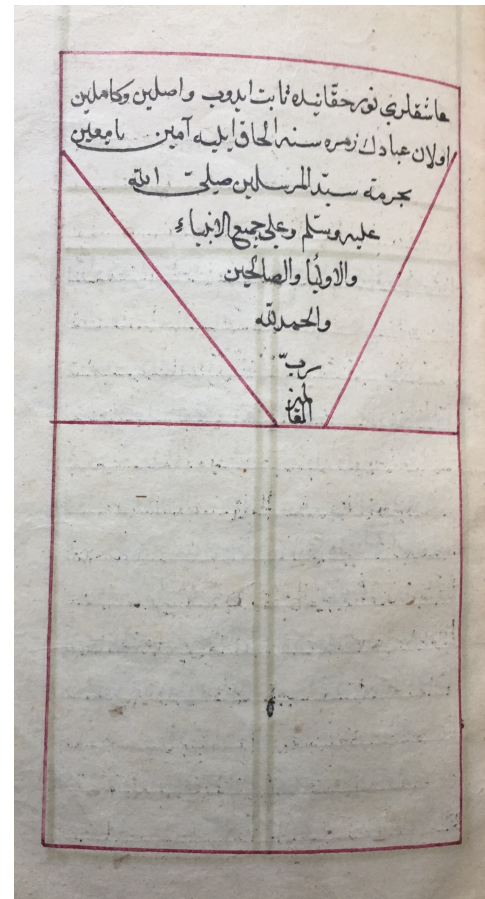 عاشقلري نور حقانيده ثابت ايدوب واصلين وكاملين
اولان عبادك زمره سنه الحاق ايليه آمين يا معين
بحرمة سيّد المرسلين صلي الله
عليه وسلم وعلي جميع الانبياء
والاوليا والصالحين
والحمد لله
ربّ
العالمين